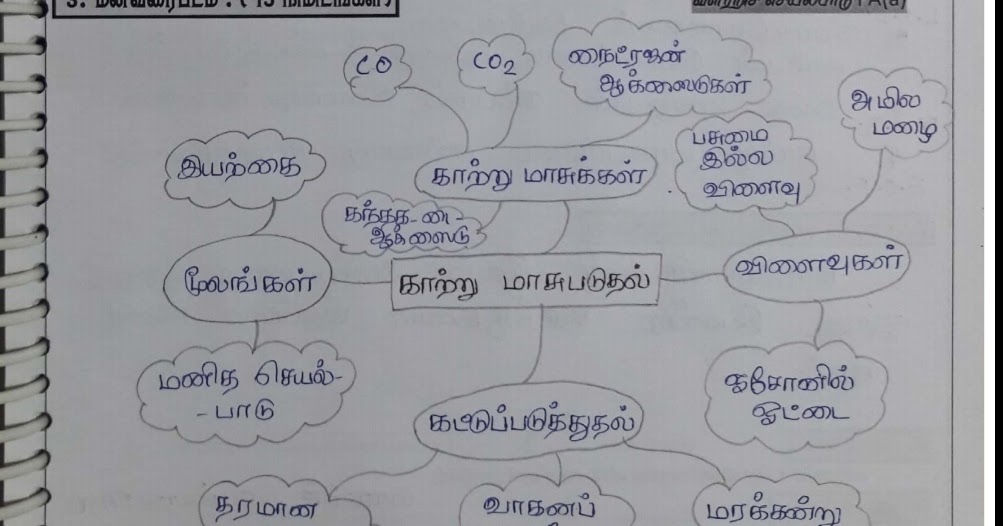 3. மனவரைபடம் : ( 15 நிமிடங்கள்)
CO
CO2
நைட்ரஜன்
ஆக்ஸைடுகள்
அமில
மழை
பசுமை
இல்ல
விளைவு
இயற்கை
காற்று மாசுக்கள்
கந்தக-டை-
ஆக்ஸைடு
மூலங்கள்
காற்று மாசுபடுதல்
விளைவுகள்
மனித செயல்-
-பாடு
ஓசோனில்
ஓட்டை
கட்டுப்படுத்துதல்
தரமான
வாகனப்
மரக்கன்று